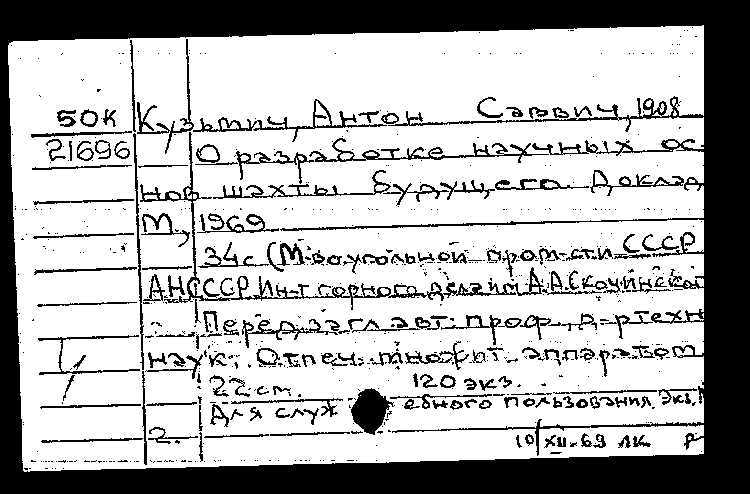 50К Кузьмич, Антон Саввич, 1908
21696 О разработке научных ос-
нов шахты будущего. Доклад
М, 1969
34с (М-во угольной пром-сти СССР
АН СССР. Ин-т горного дела им А.А.Скочинског
Перед загл авт: проф., д-р техн
наук. Отпеч. множит. аппаратом
22 см. 120 экз.
Для служебного пользования. Экз.
2.
10/XII-69 лк. Р